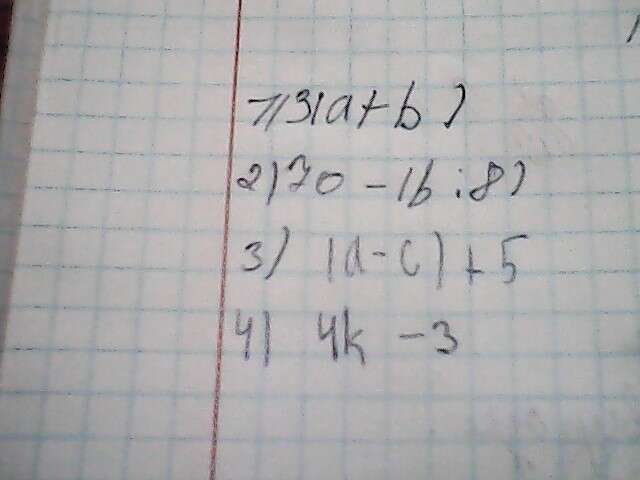 1) 3(a+b)
2) 70 - (b : 8)
3) (d - c) + 5
4) 4k - 3